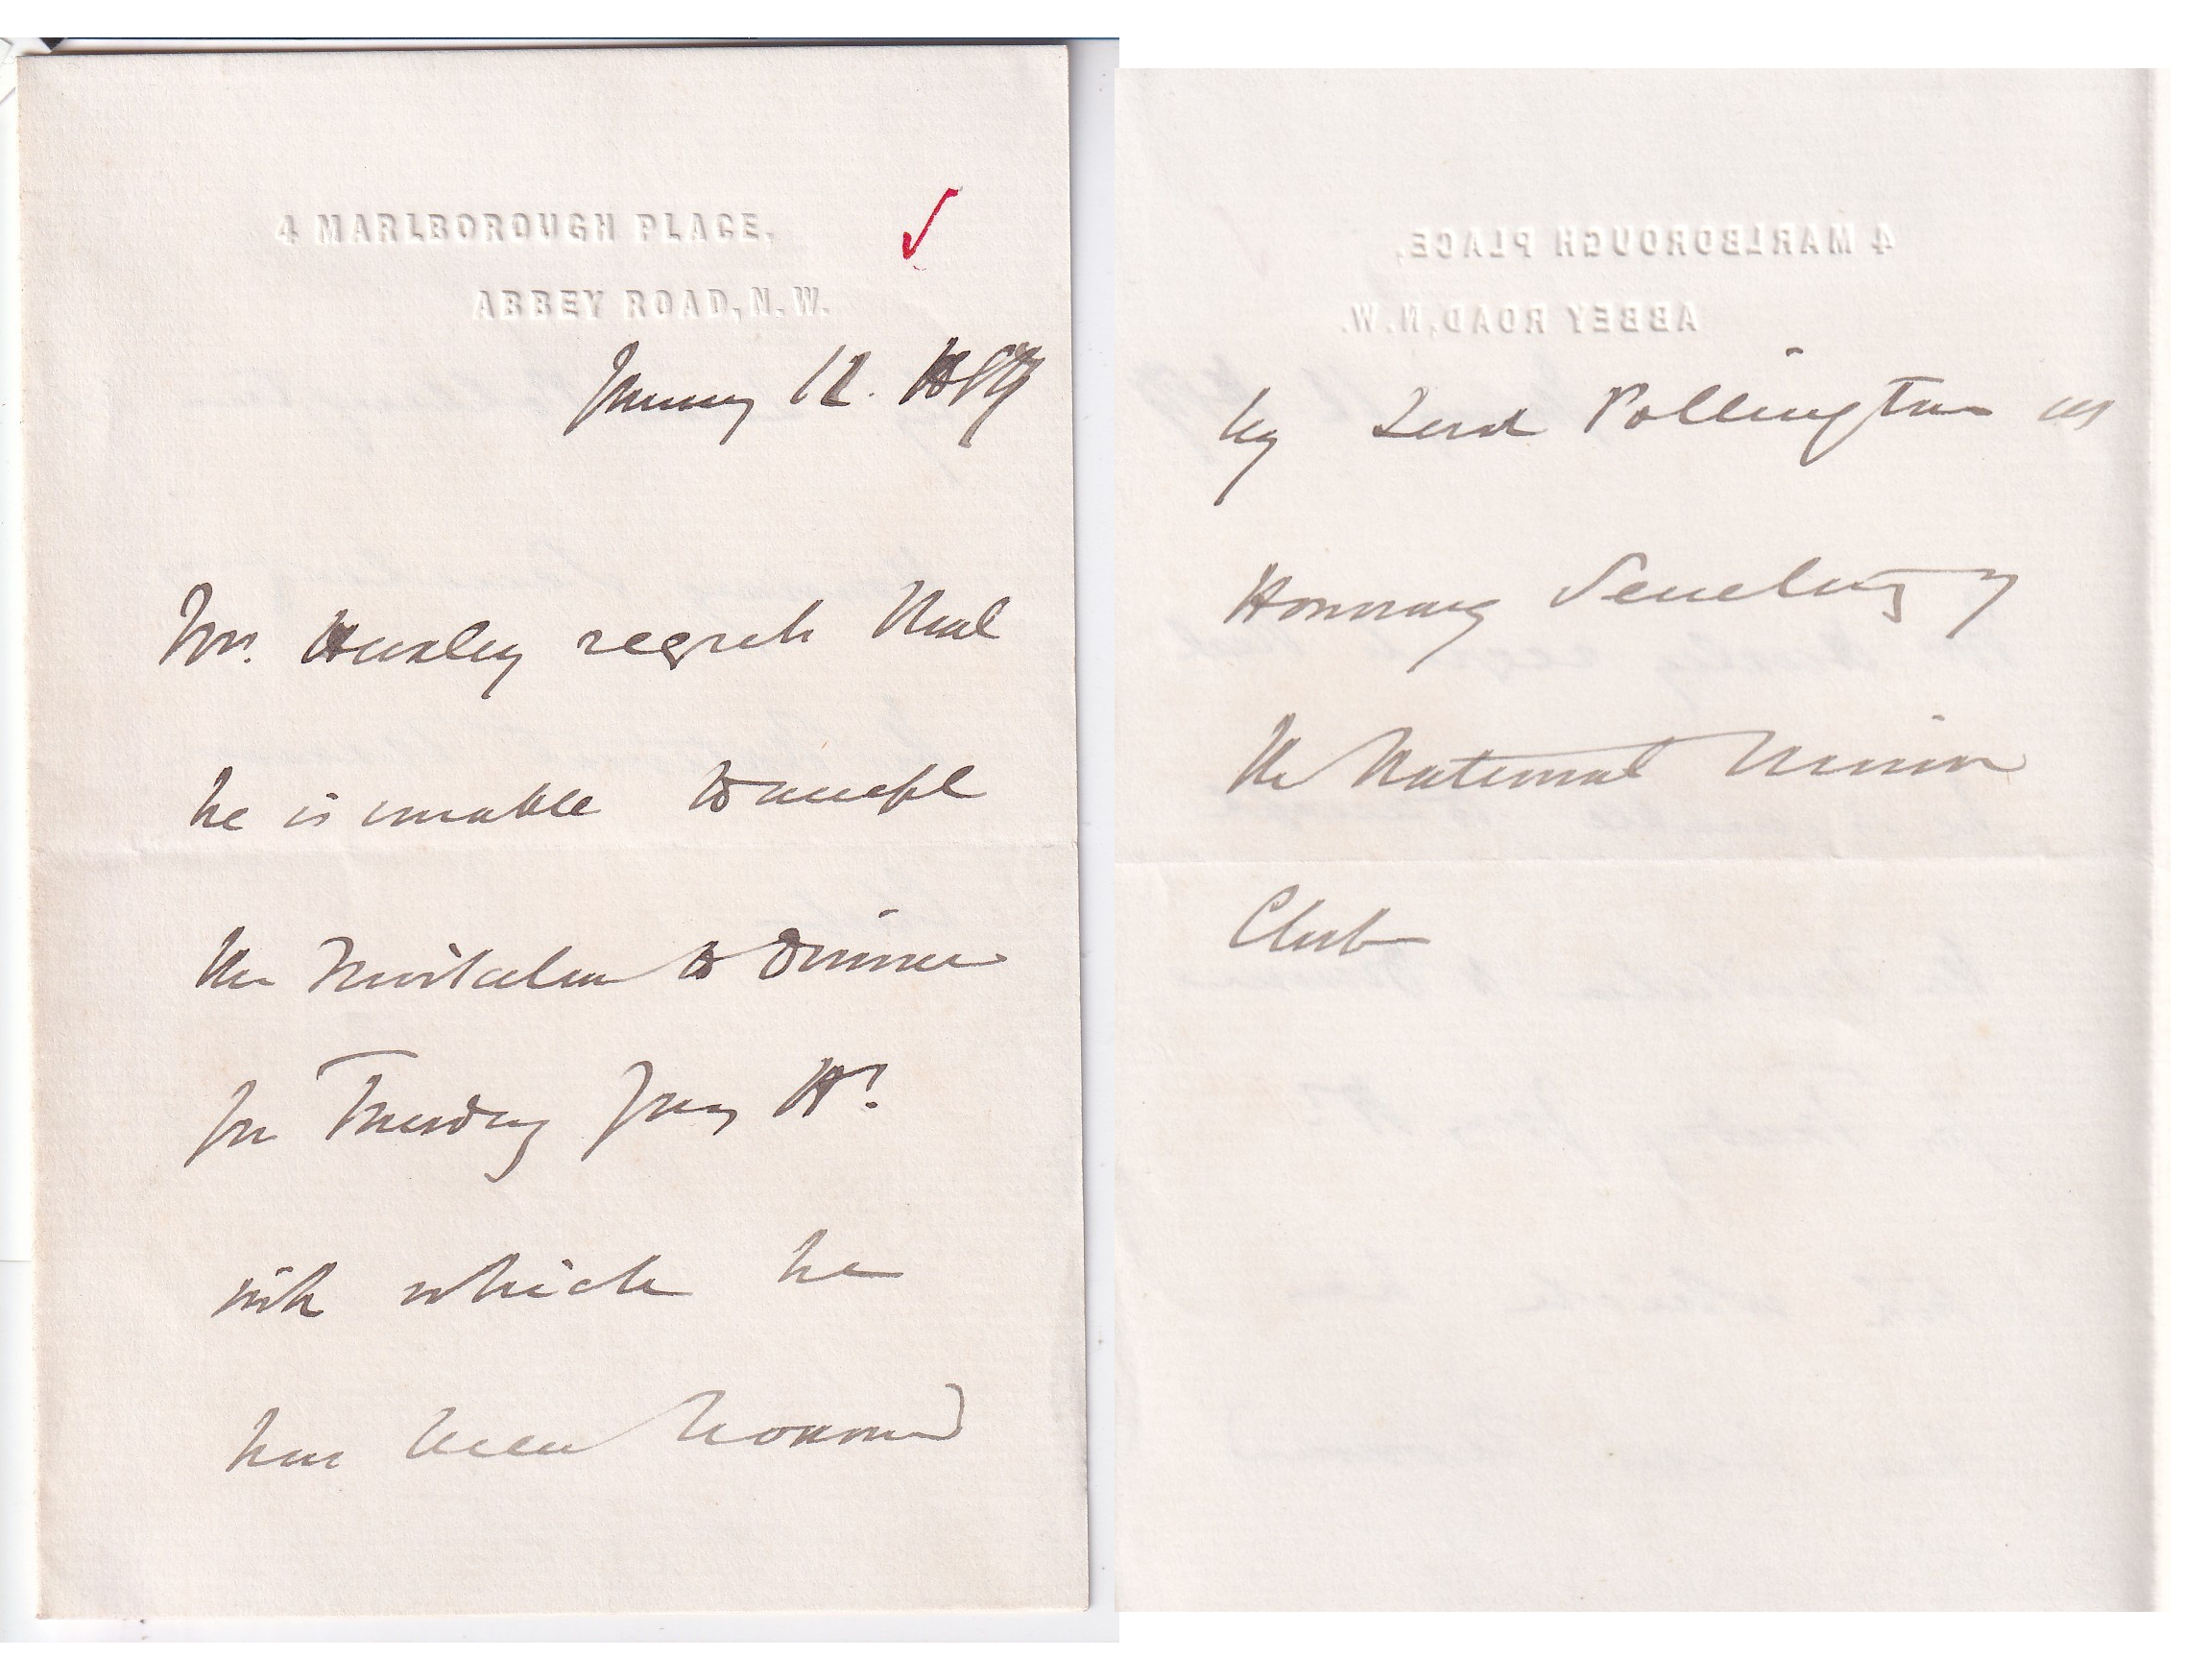 4 MARLBOROUGH PLACE,
ABBEY ROAD, N.W.
January 12.
Mr. Huxley regrets that
he is unable to accept
the invitation to dinner
for Tuesday Jany
with which he
has been honoured
by Lord Pollington as
Honorary Secretary of
the National Union
Club